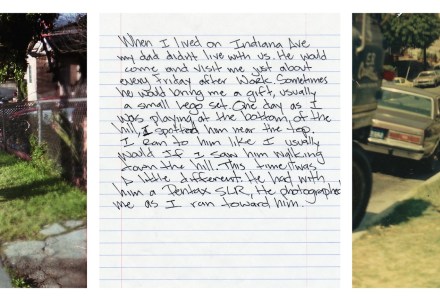 When I lived on Indiana Ave
my dad didn't live with us. He would
come and visit me just about
every Friday after work. Sometimes
he would bring me a gift, usually
a small Lego set. One day as I
was playing at the bottom of the
hill, I spotted him near the top.
I ran to him like I usually
would If I saw him walking
down the hill. This time it was
a little different. He had with
him a Pentax SLR, He photographed
me as I ran toward him.